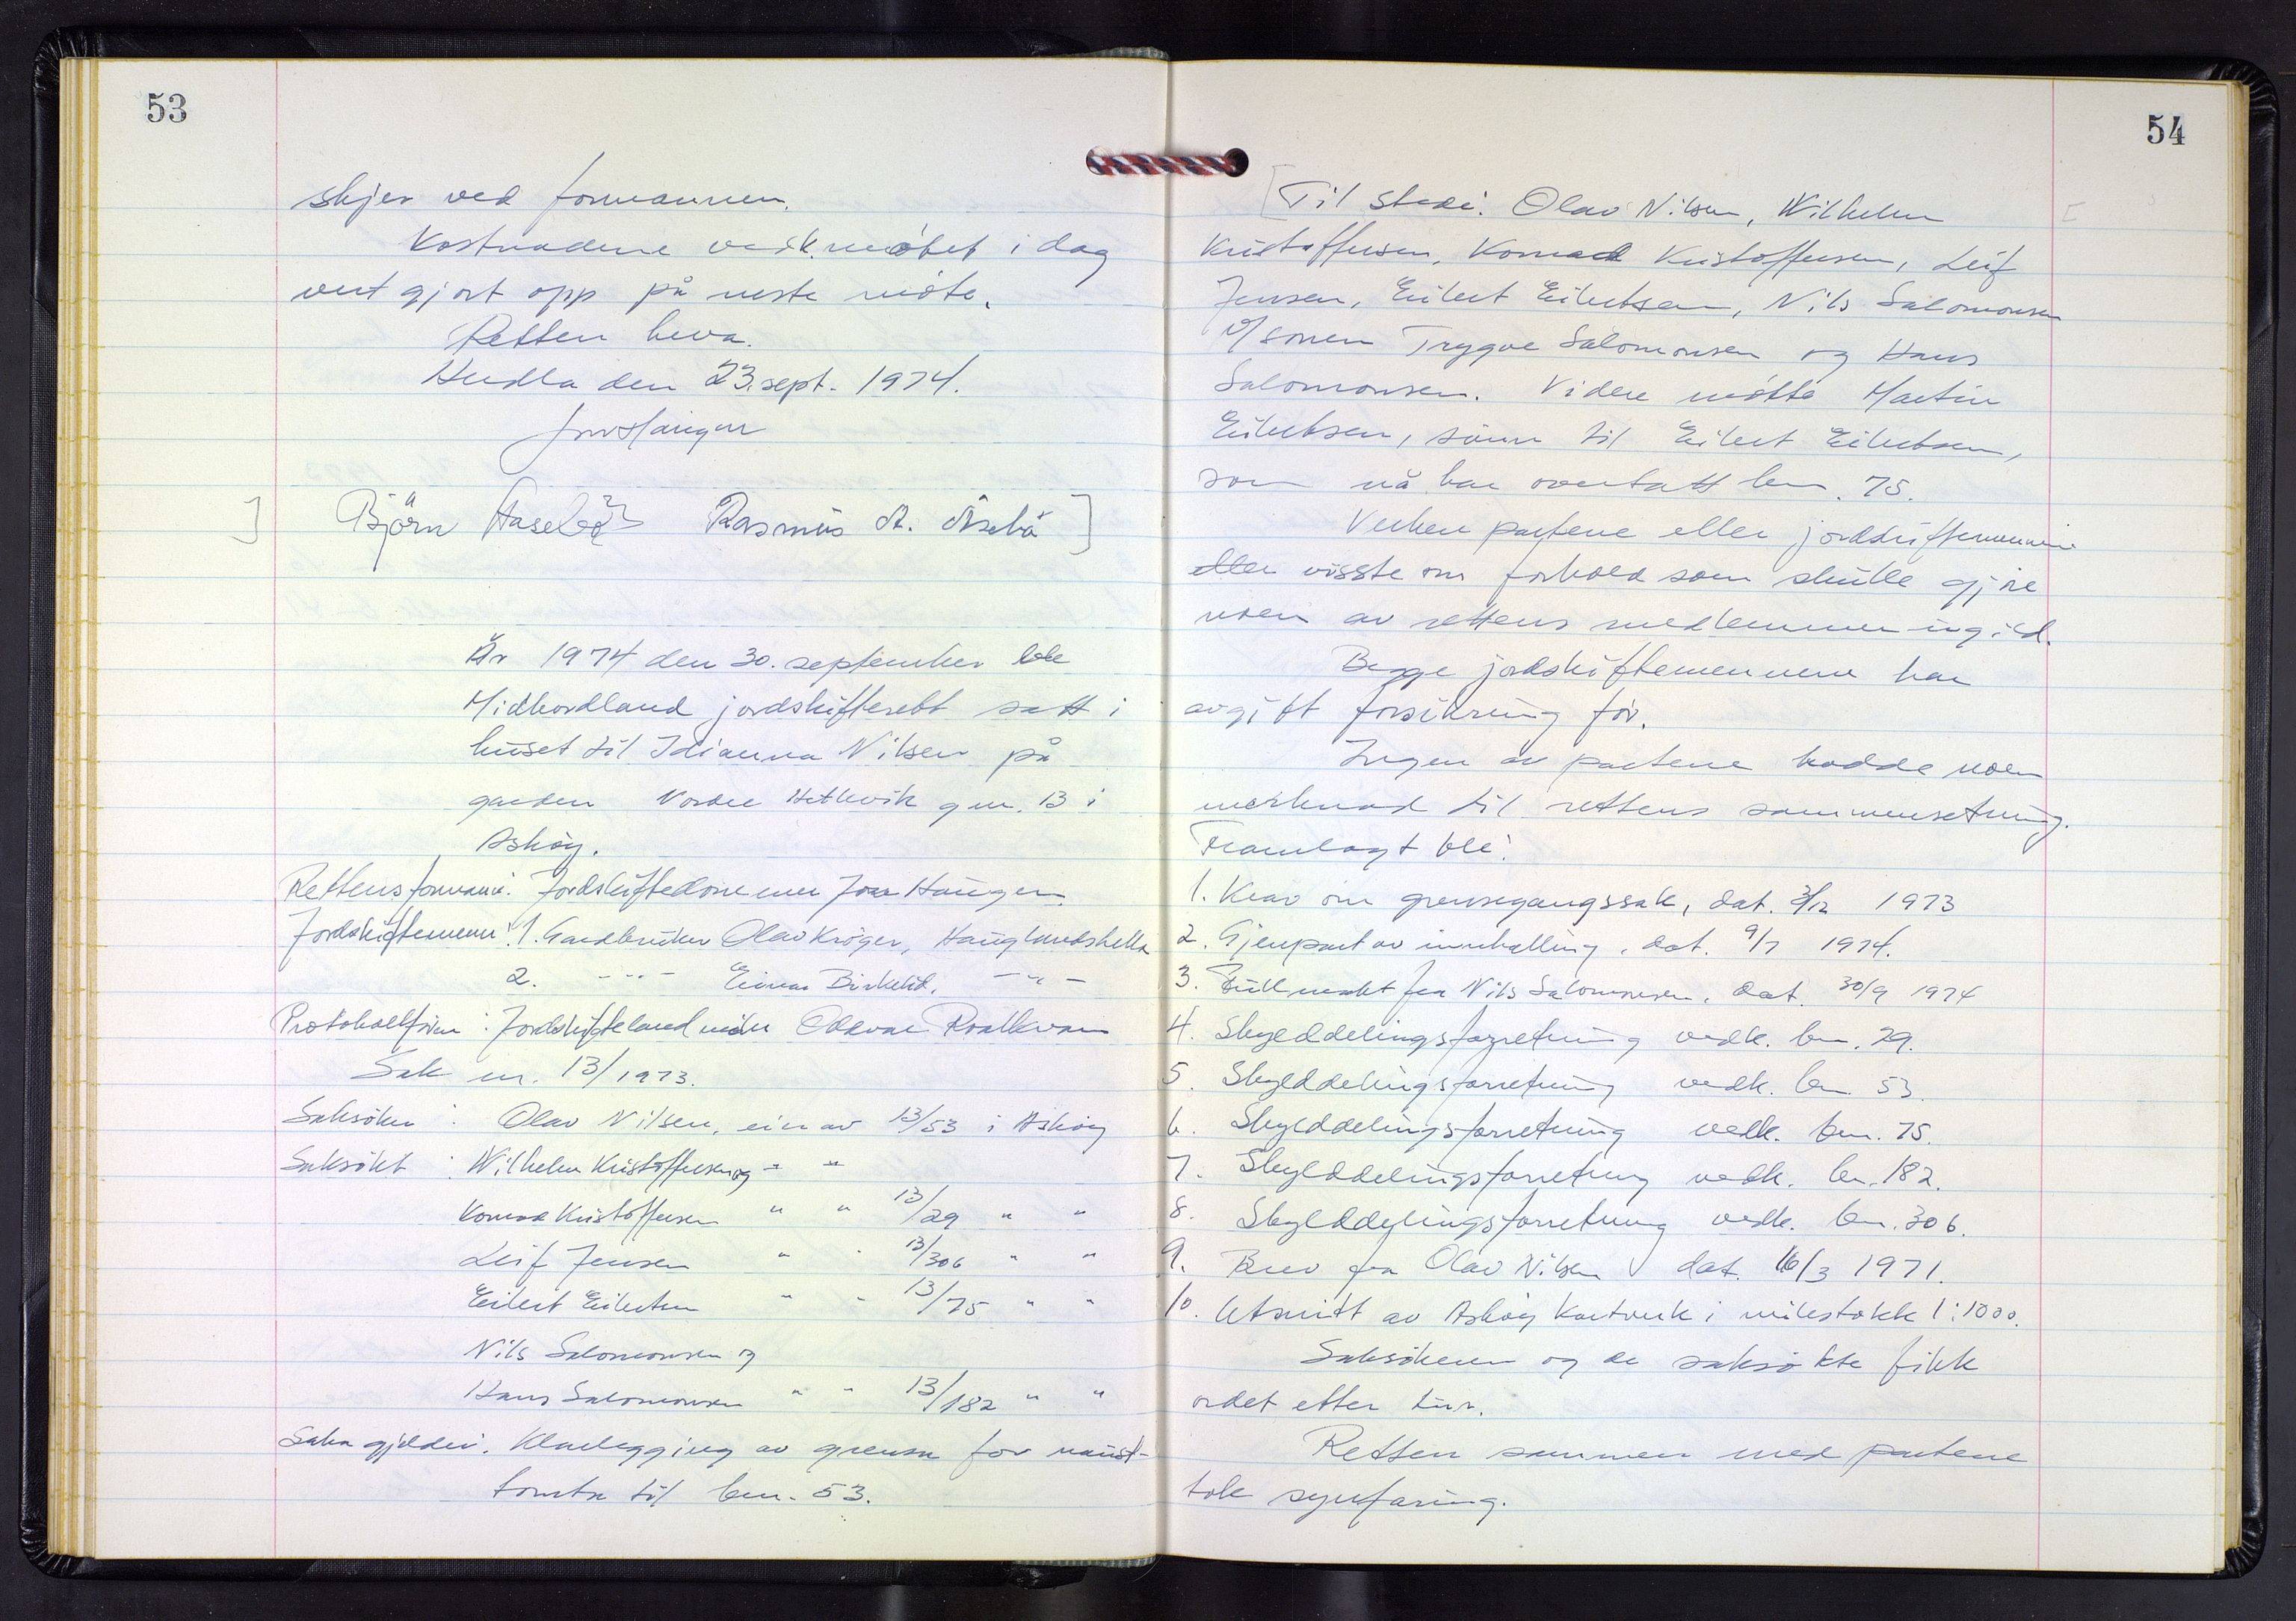 53
skjer ved formannen.
Kostnadene vedk. møtet i dag
vert gjort opp på neste møte.
Retten heva.
Herdla den 23. sept. 1974.
Jon Haugen
Björn Rasmus A.
År 1974 den 30. september ble
Midhordland jordskifterett satt i
huset til Idianna Nilsen på
garden Nordre Hetlevik gnr. 13 i
Askøy.
Rettens formann: Jordskiftedommer Jon Haugen
Jordskiftemenn: 1. Gardbruker Olav Krøger, Hauglandshella
2. -"- Einar Birkelid, -"-
Protokollfører: Jordskiftelandmåler Oddvar
Sak nr. 13/1973.
Saksøker: Olav Nilsen, eier av 13/53 i Askøy
Saksøkt: Wilhelm Kristoffersen og " "
Konrad Kristoffersen " " 13/29 " "
Leif Jensen " " 13/306 " "
Eilert Eilertsen " " 13/75 " "
Nils Salomonsen og
Hans Salomonsen " " 13/182 " "
Saka gjelder: Klarlegging av grensa for naust-
tomta til bnr. 53.
54
Til stede: Olav Nilsen, Wilhelm
Kristoffersen, Konrad Kristoffersen, Leif
Jensen, Eilert Eilertsen, Nils Salomonsen
v/sønen Trygve Salomonsen og Hans
Salomonsen. Videre møtte Martin
Eilertsen, sønn til Eilert Eilertsen,
som nå har overtatt bnr. 75.
Verken partene eller jordskiftemennene
eller visste om forhold som skulle gjøre
noen av rettens medlemmer ugild.
Begge jordskiftemennene har
avgitt forsikring før.
Ingen av partene hadde noen
merknad til rettens sammensetning.
Framlagt ble:
1. Krav om grensegangssak, dat. 3/12 1973
2. Gjenpart av innkalling, dat. 9/7 1974.
3. Fullmakt fra Nils Salomonsen, dat. 30/9 1974
4. Skylddelingsforretning vedk. bnr. 29.
5. Skylddelingsforretning vedk. bnr 53.
6. Skylddelingsforretning vedk. bnr. 75.
7. Skylddelingsforretning vedk. bnr. 182.
8. Skylddelingsforretning vedk. bnr. 306.
9. Brev fra Olav Nilsen dat. 16/3 1971.
10. Utsnitt av Askøy kartverk i målestokk 1:1000.
Saksøkeren og de saksøkte fikk
ordet etter tur.
Retten sammen med partene
tok synfaring.